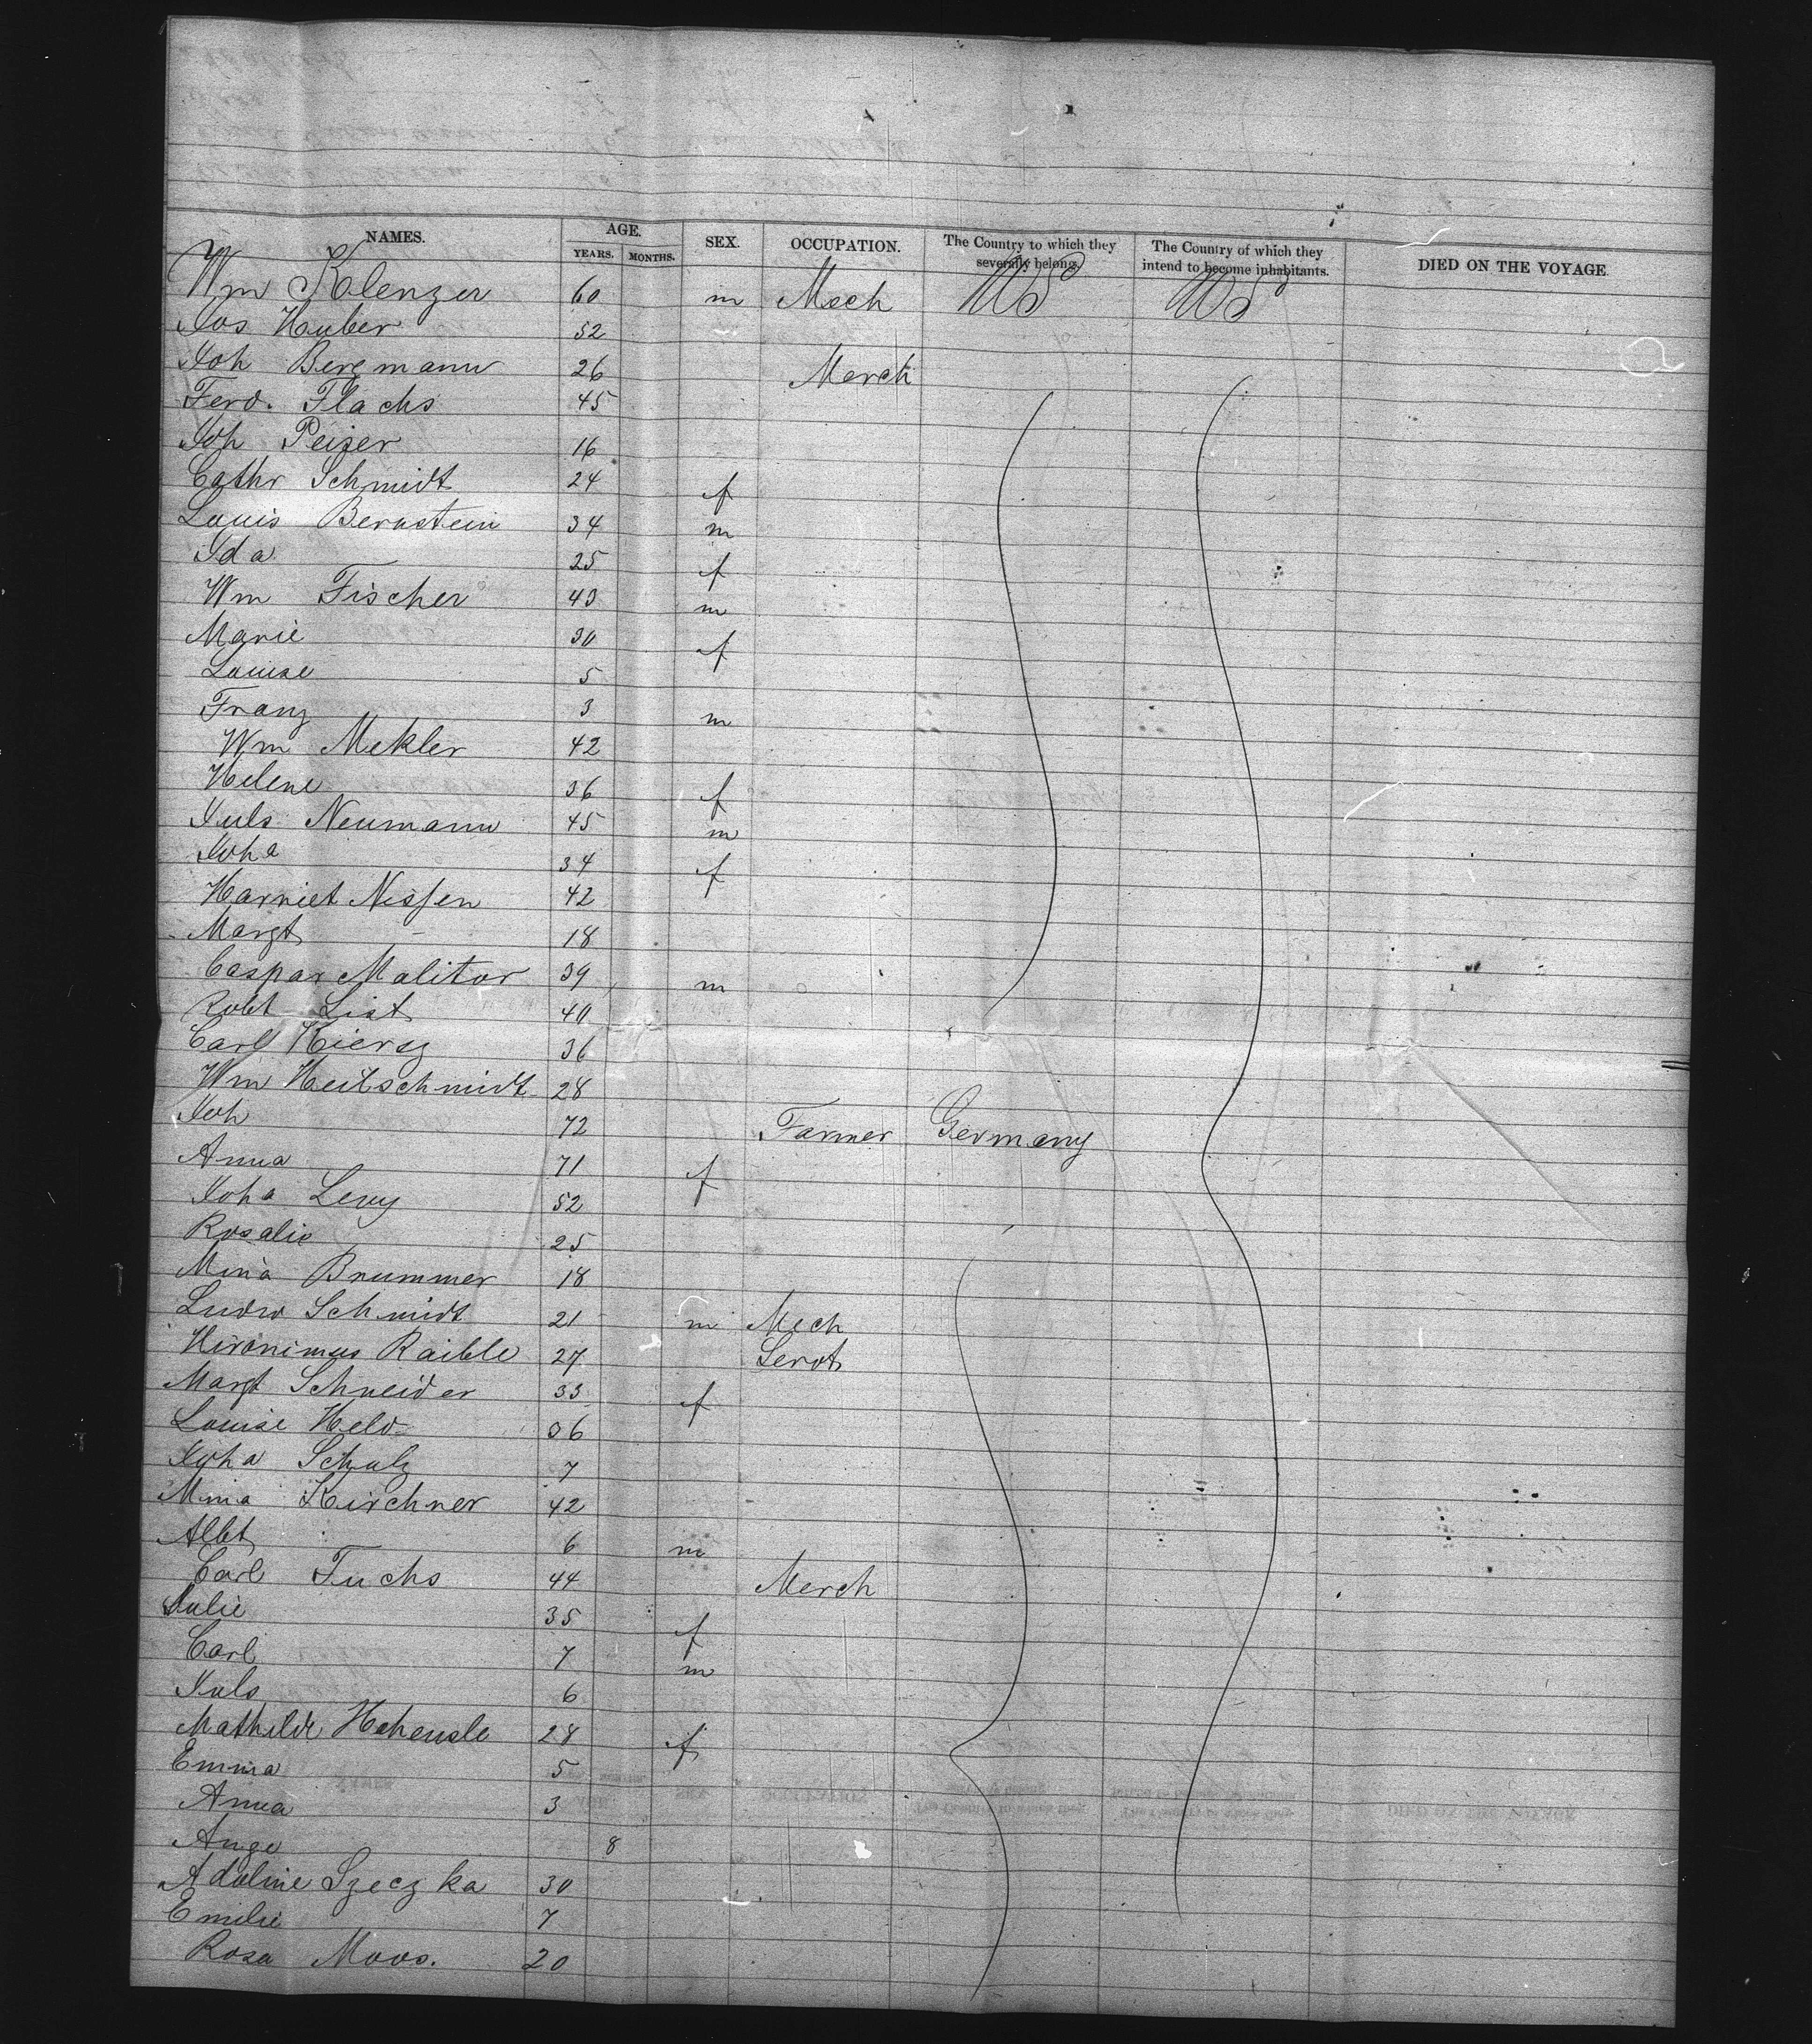 NAMES. AGE. SEX. OCCUPATION. The Country to which they severally belong. The Country of which they intend to become inhabitants. DIED ON THE VOYAGE.
YEARS. MONTHS.
Wm Klenzer 60 m Mech US US
Jos Huber 52
Joh Bergmann 26 Merch
Ferd. Flachs 45
Joh Peiser 16
Cathr Schmidt 24 f
Louis Bernstein 34 m
Ida 25 f
Wm Fischer 43 m
Marie 30 f
Louise 5
Franz 3 m
Wm Mekler 42
Helene 36 f
Juls Neumann 45 m
Joha 34 f
Harriet Nissen 42
Margt 18
Caspar Malitor 39 m
Robt List 40
Carl Kiersz 36
Wm Heitschmidt 28
Joh 72 Farmer Germany
Anna 71 f
Joha Levy 52
Rosalie 25
Mina Brummer 18
Ludw Schmidt 21 m Mech
Hironimus Raible 27 Servt
Margt Schneider 33 f
Louise Held 36
Joha Schulz 7
Mina Kirchner 42
Albt 6 m
Carl Fuchs 44 Merch
Julie 35 f
Carl 7 m
Juls 6
Mathilde 28 f
Emma 5
Anna 3
Auge 8
Adoline Szeczka 30
Emilie 7
Rosa Moos. 20